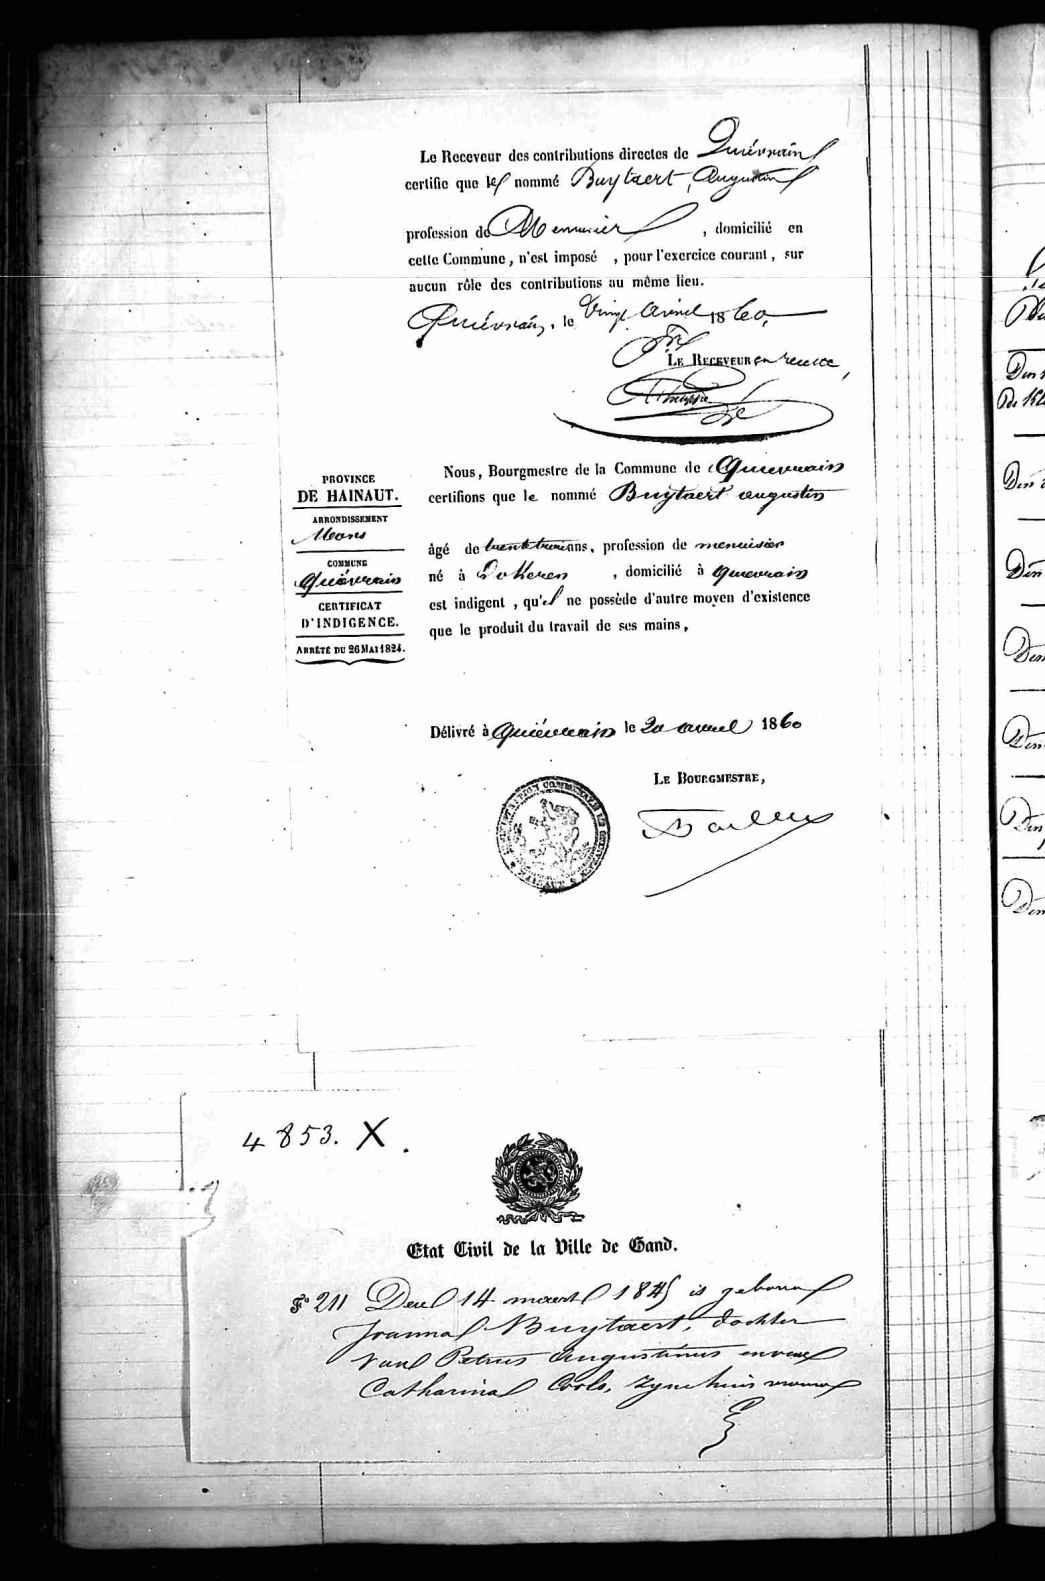 Le Receveur des contributions directes de Quiévrain
certifie que le nommé Buytaert, Augustin
profession de Menuisier, domicilié en
cette Commune, n'est imposé, pour l'exercice courant, sur
aucun rôle des contributions au même lieu.
Quiévrain, le Vingt Avril 1860,
Le Receveur
PROVINCE
DE HAINAUT.
ARRONDISSEMENT
Mons
COMMUNE
Quiévrain
CERTIFICAT
D'INDIGENCE.
ARRÊTÉ DU 26 MAI 1824.
Nous, Bourgmestre de la Commune de Quievrain
certifions que le nommé Buytaert augustin
âgé de ans, profession de menuisier
né à Lokeren, domicilié à quievrain
est indigent, qu'il ne possède d'autre moyen d'existence
que le produit du travail de ses mains,
Délivré à Quiévrain le 20 avril 1860
Le Bourgmestre,
4853. X.
Etat Civil de la Ville de Gand.
F° 211 Den 14 maert 1845 is geboren
Joanna Buytaert, dochter
van Petrus Augustinus en van
Catharina Cools, zyne huisvrouw